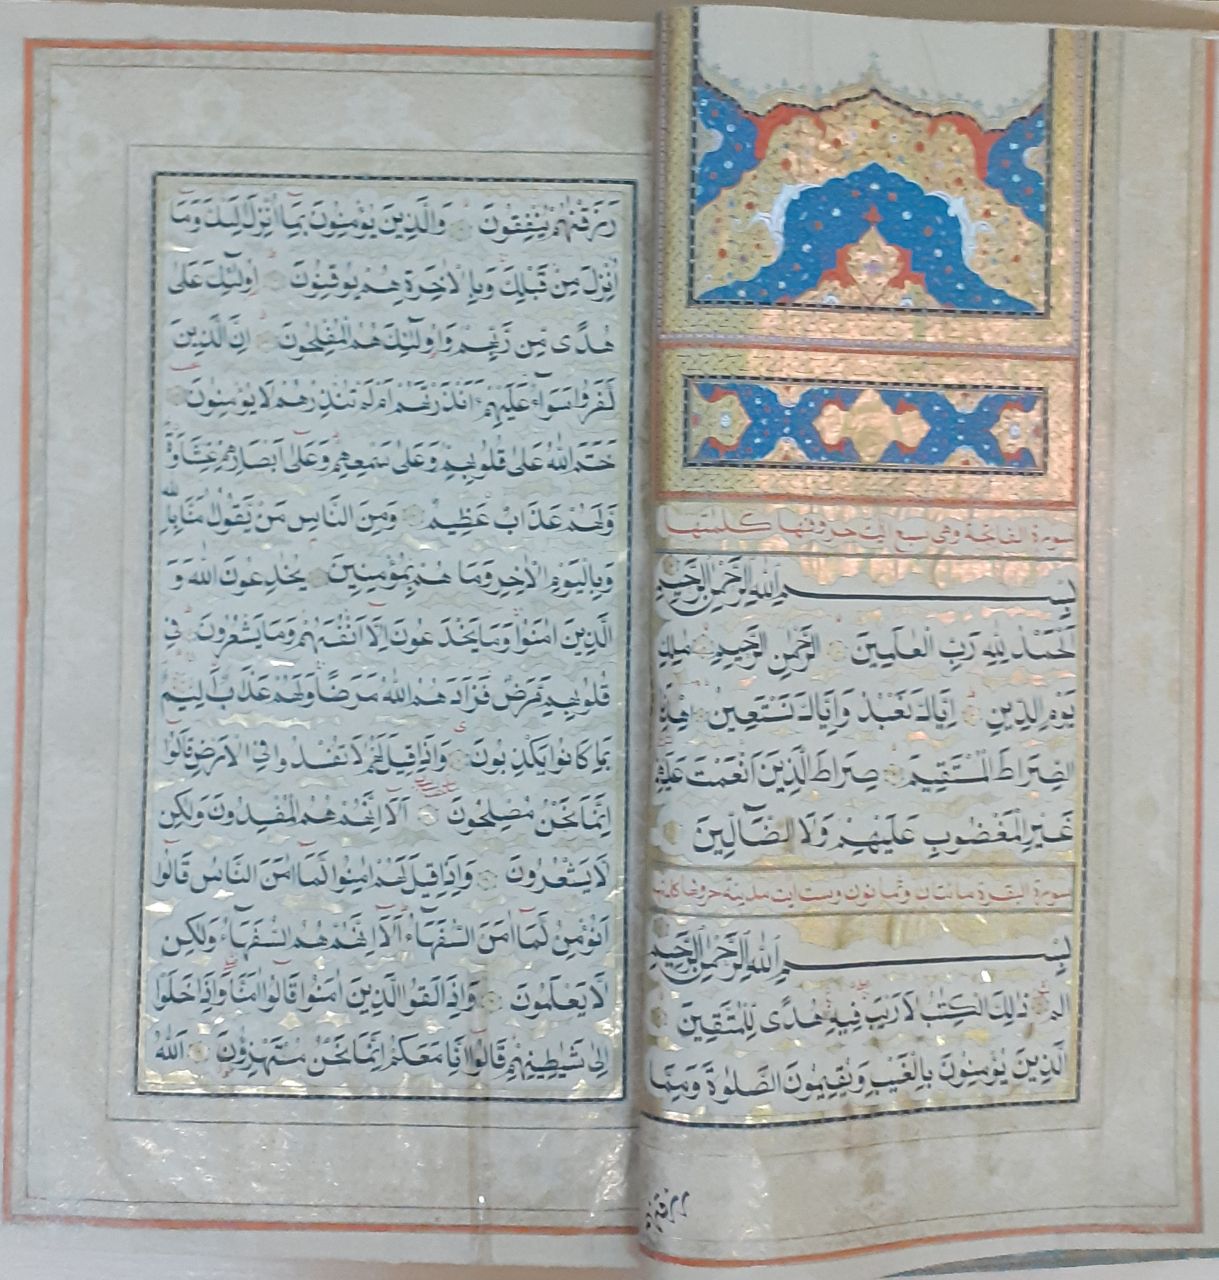 سورة الفاتحة وهي سبع ايت حروفها كلمتها
بسم الله الرحمن الرحيم
اَلْحَمْدُ لِلّٰهِ رَبِّ الْعٰلَمِينَ الرَّحْمٰنِ الرَّحِيمِ مٰلِكِ
يَوْمِ الدِّينِ اِيَّاكَ نَعْبُدُ وَاِيَّاكَ نَسْتَعِينُ اِهْدِنَا
الصِّرَاطَ الْمُسْتَقِيمَ صِرَاطَ الَّذِينَ اَنْعَمْتَ عَلَيْهِمْ
غَيْرِ الْمَغْضُوبِ عَلَيْهِمْ وَلَا الضَّالِّينَ
سورة البقرة مائتان وثمانون وست ايت مدينة حروفها كلمتها
بسم الله الرحمن الرحيم
الم ذٰلِكَ الْكِتٰبُ لَا رَيْبَ فِيهِ هُدًى لِلْمُتَّقِينَ
الَّذِينَ يُؤْمِنُونَ بِالْغَيْبِ وَيُقِيمُونَ الصَّلٰوةَ وَمِمَّا
رَزَقْنٰهُمْ يُنْفِقُونَ وَالَّذِينَ يُؤْمِنُونَ بِمَا اُنْزِلَ اِلَيْكَ وَمَا
اُنْزِلَ مِنْ قَبْلِكَ وَبِالْاٰخِرَةِ هُمْ يُوقِنُونَ اُولٰٓئِكَ عَلٰى
هُدًى مِنْ رَبِّهِمْ وَاُولٰٓئِكَ هُمُ الْمُفْلِحُونَ اِنَّ الَّذِينَ
كَفَرُوا سَوَآءٌ عَلَيْهِمْ ءَاَنْذَرْتَهُمْ اَمْ لَمْ تُنْذِرْهُمْ لَا يُؤْمِنُونَ
خَتَمَ اللهُ عَلٰى قُلُوبِهِمْ وَعَلٰى سَمْعِهِمْ وَعَلٰى اَبْصَارِهِمْ غِشَاوَةٌ
وَلَهُمْ عَذَابٌ عَظِيمٌ وَمِنَ النَّاسِ مَنْ يَقُولُ اٰمَنَّا بِاللهِ
وَبِالْيَوْمِ الْاٰخِرِ وَمَا هُمْ بِمُؤْمِنِينَ يُخٰدِعُونَ اللهَ وَ
الَّذِينَ اٰمَنُوا وَمَا يَخْدَعُونَ اِلَّا اَنْفُسَهُمْ وَمَا يَشْعُرُونَ فِي
قُلُوبِهِمْ مَرَضٌ فَزَادَهُمُ اللهُ مَرَضًا وَلَهُمْ عَذَابٌ اَلِيمٌ
بِمَا كَانُوا يَكْذِبُونَ وَاِذَا قِيلَ لَهُمْ لَا تُفْسِدُوا فِي الْاَرْضِ قَالُوا
اِنَّمَا نَحْنُ مُصْلِحُونَ اَلَا اِنَّهُمْ هُمُ الْمُفْسِدُونَ وَلٰكِنْ
لَا يَشْعُرُونَ وَاِذَا قِيلَ لَهُمْ اٰمِنُوا كَمَا اٰمَنَ النَّاسُ قَالُوا
اَنُؤْمِنُ كَمَا اٰمَنَ السُّفَهَآءُ اَلَا اِنَّهُمْ هُمُ السُّفَهَآءُ وَلٰكِنْ
لَا يَعْلَمُونَ وَاِذَا لَقُوا الَّذِينَ اٰمَنُوا قَالُوا اٰمَنَّا وَاِذَا خَلَوْا
اِلٰى شَيٰطِينِهِمْ قَالُوا اِنَّا مَعَكُمْ اِنَّمَا نَحْنُ مُسْتَهْزِؤُنَ اَللهُ